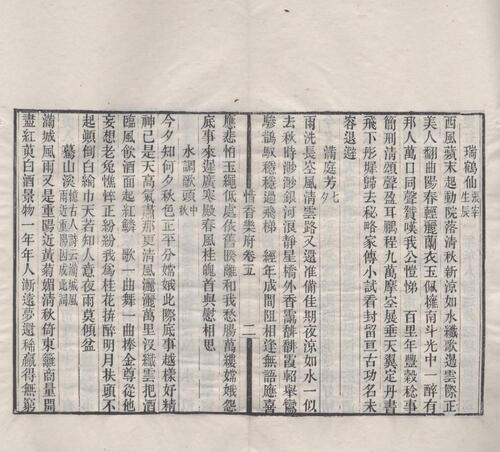 瑞鶴仙張宰生辰
西風蘋末起動院落清秋新涼如水纖歌遏雲際正
美人翻曲陽春輕麗蘭衣玉佩擁南斗光中一醉有
那人萬口同聲贊嘆我公愷悌　百里年豐穀稔事
簡刑清頌聲盈耳鵬程九萬摩空展垂天翼定丹書
飛下彤墀歸去秘略家傳小試看封留亘古功名未
容退避
滿庭芳七夕
雨洗長空風清雲路又還准備佳期夜涼如水一似
去秋時渺渺銀河浪靜星橋外香靄霏霏霞軺舉鸞
驂鵲馭穩穩過飛梯　經年成間阻相逢無語應喜
惜香樂府卷五　二
應悲怕玉繩低處依舊睽離和我愁腸萬縷嫦娥怨
底事來遲廣寒殿春風桂魄首與慰相思
水調歌頭中秋
今夕知何夕秋色正平分嫦娥此際底事越樣好精
神已是天高氣肅那更清風灑灑萬里沒纖雲把酒
臨風飲酒面起紅鱗　歌一曲舞一曲捧金尊從他
妄想老兔憔悴正紛紛我為桂花拚醉明月扶頭不
起顛倒白綸巾天若知人意夜雨莫傾盆
驀山溪憶古人詩云滿城風雨近重陽因成此詞
滿城風雨又是重陽近黃菊媚清秋倚東籬商量開
盡紅萸白酒景物一年年人漸遠夢還稀贏得無窮